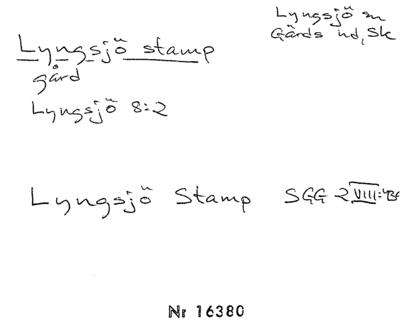 Lyngsjö sn
Gärds hd, Sk
Lyngsjö stamp
gård
Lyngsjö 8:2
Lyngsjö Stamp SGG 2 VIII:
Nr 16380